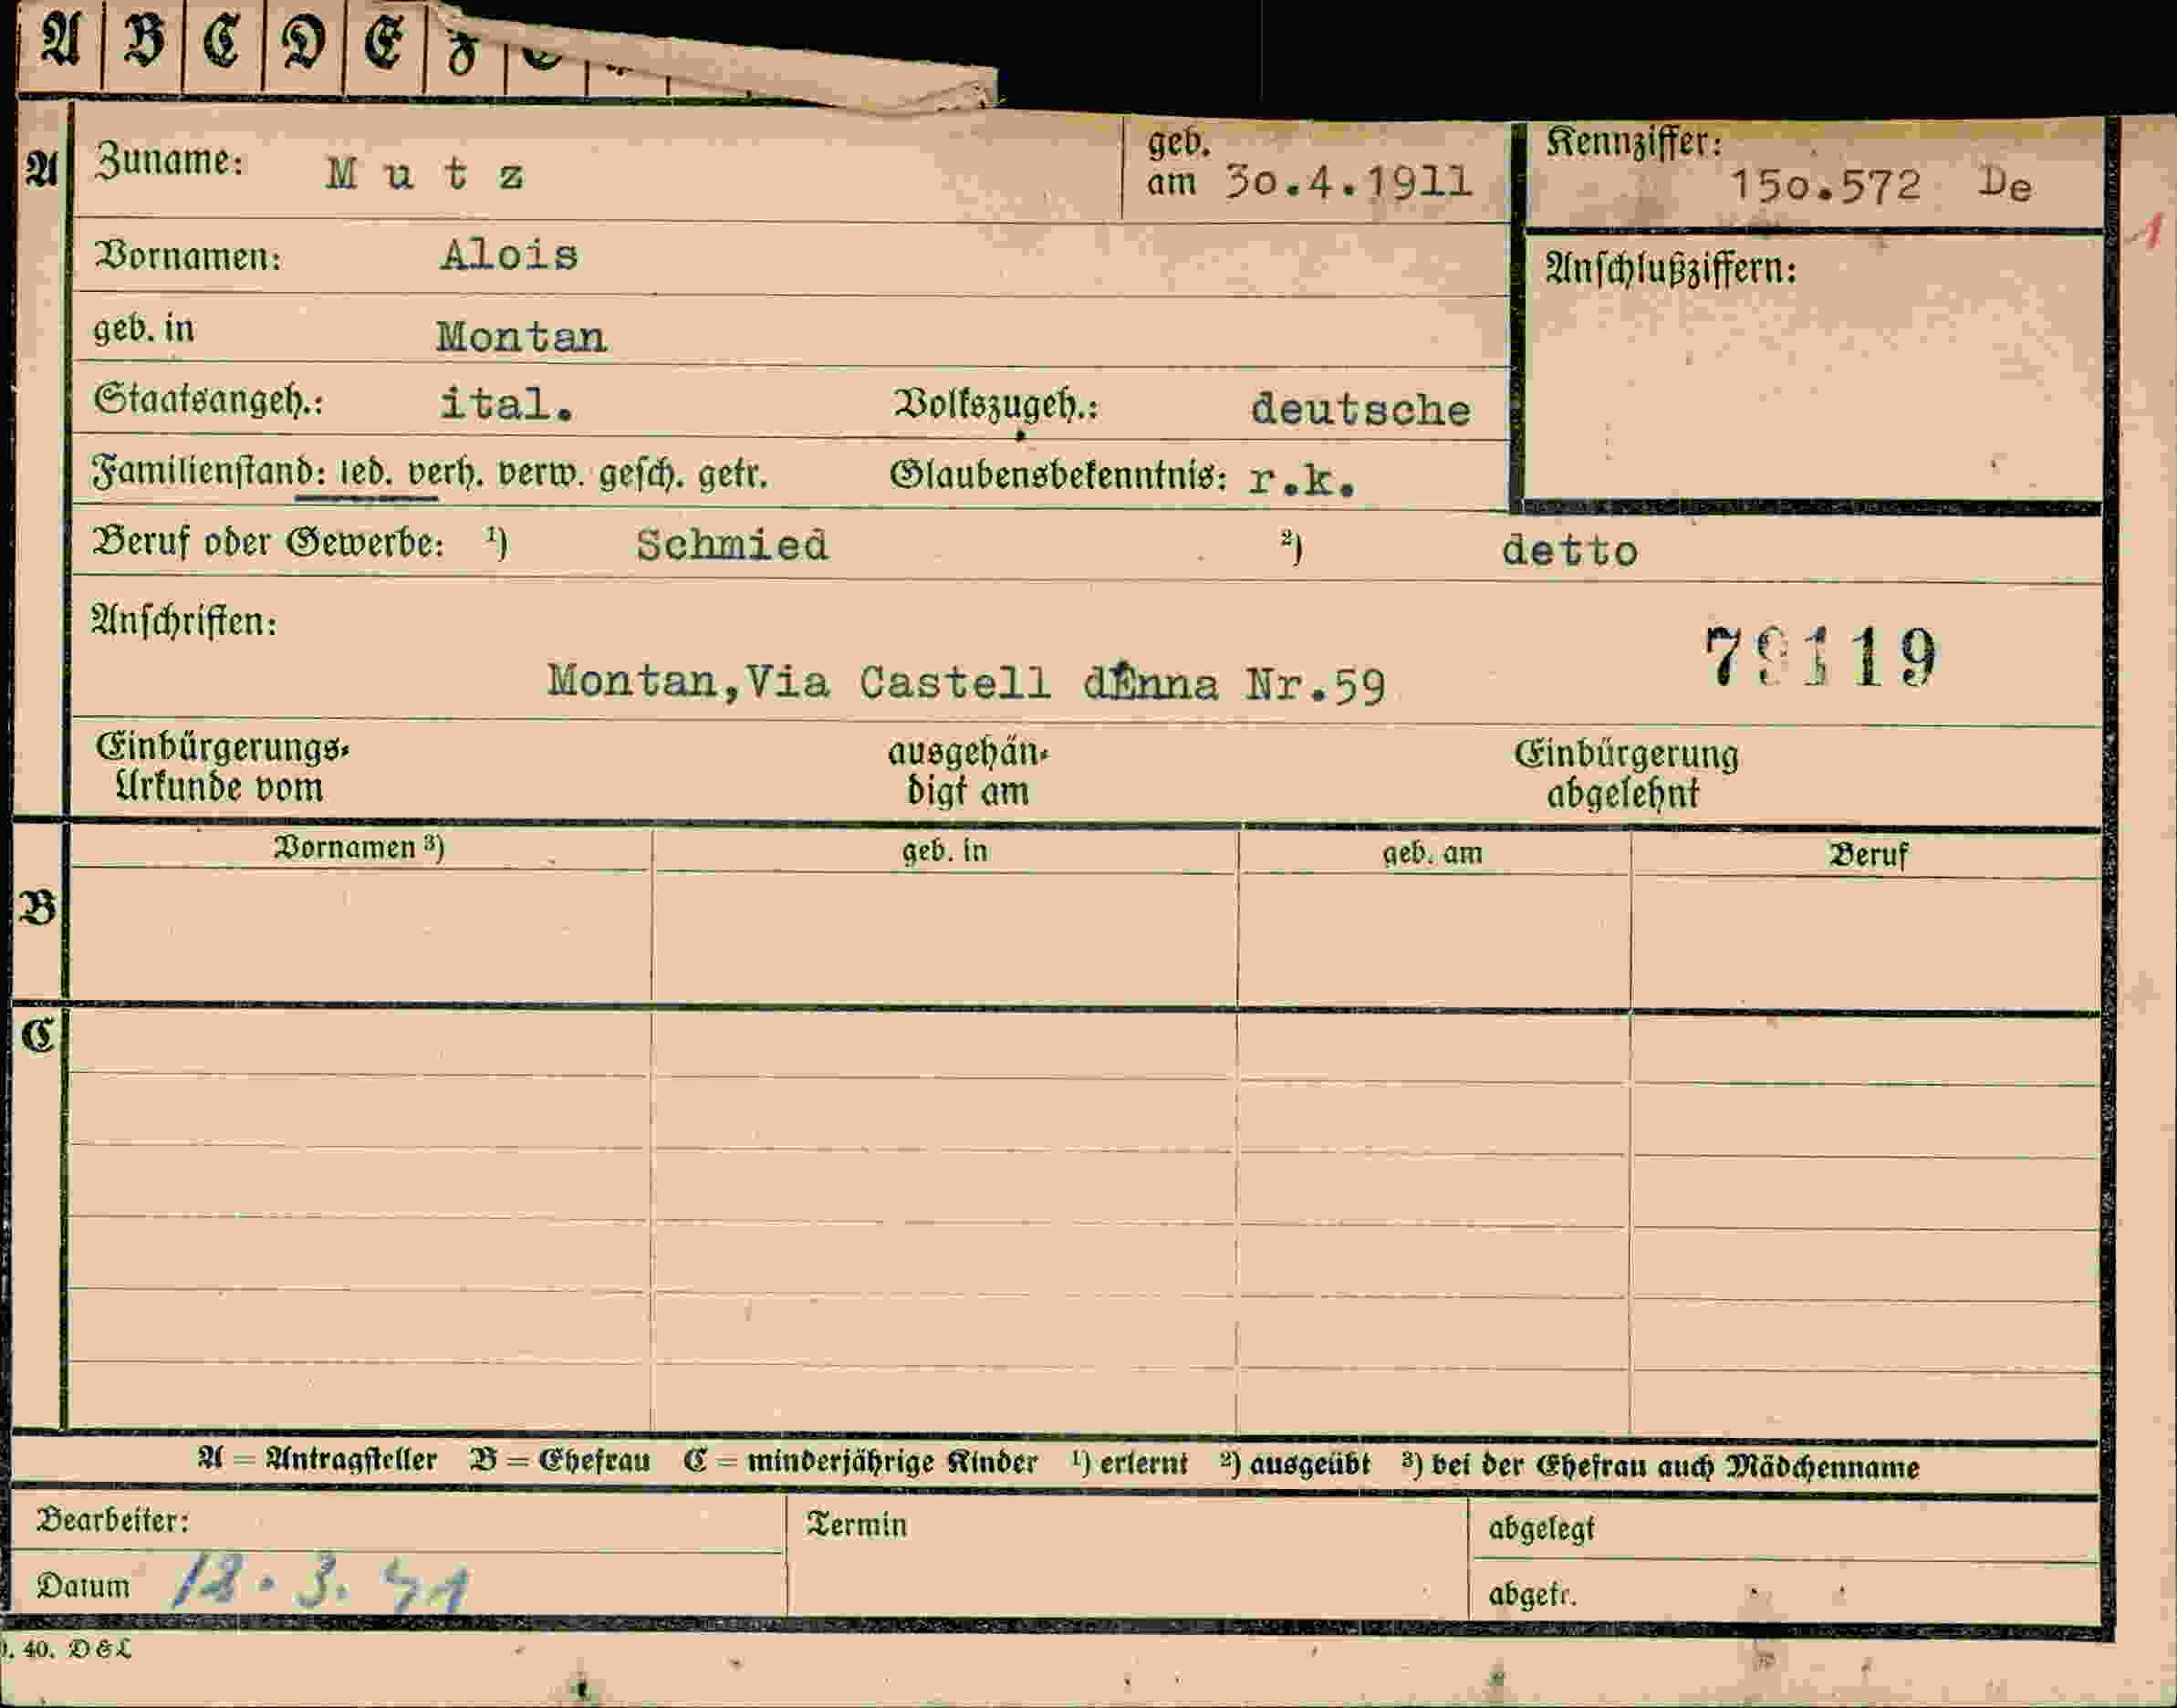 A B C D E F
A Zuname: Mutz geb. am 30.4.1911 Kennziffer: 150.572 De
1
Vornamen: Alois Anschlußziffern:
geb. in Montan
Staatsangeh.: ital. Volkszugeh.: deutsche
Familienstand: led. verh. verw. gesch. getr. Glaubensbekenntnis: r.k.
Beruf oder Gewerbe: ¹) Schmied ²) detto
Anschriften:
Montan,Via Castell dEnna Nr.59 79119
Einbürgerungs-
Urkunde vom
ausgehän-
digt am
Einbürgerung
abgelehnt
B Vornamen ³) geb. in geb. am Beruf
C
A = Antragsteller B = Ehefrau C = minderjährige Kinder ¹) erlernt ²) ausgeübt ³) bei der Ehefrau auch Mädchenname
Bearbeiter: Termin abgelegt
Datum 12.3.41 abgetr.
40. D&L